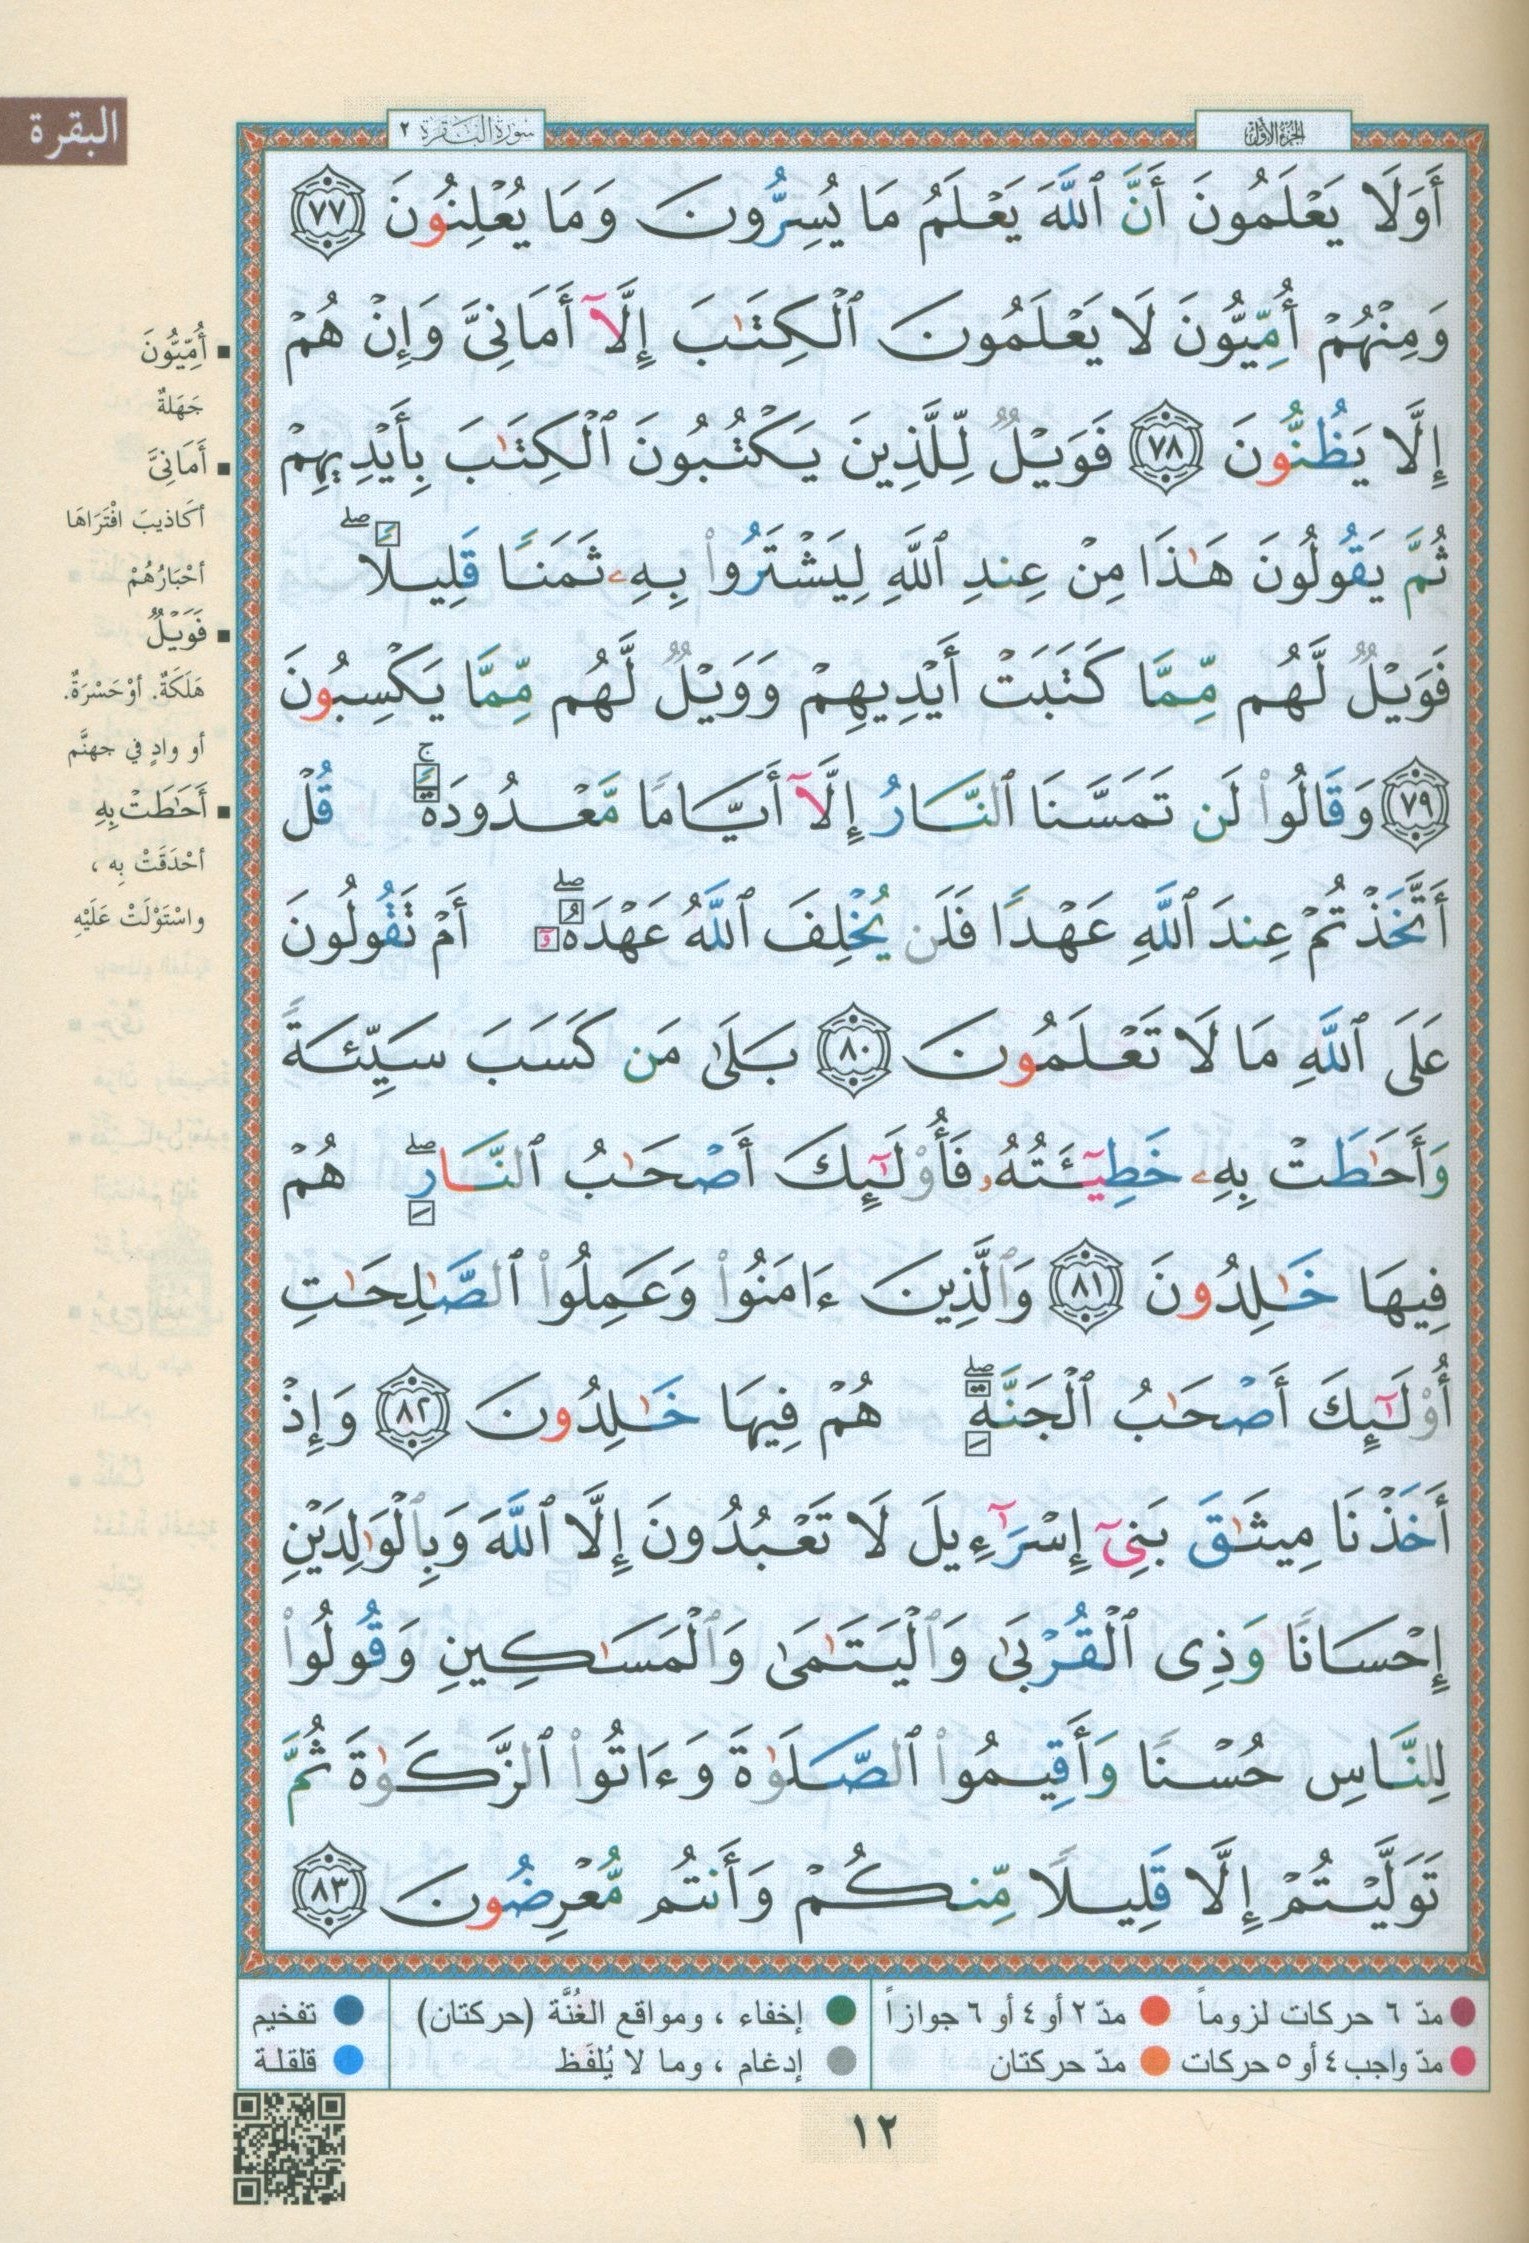 البقرة
سورة البقرة ٢
الجزء الأول
أَوَلَا يَعْلَمُونَ أَنَّ ٱللَّهَ يَعْلَمُ مَا يُسِرُّونَ وَمَا يُعْلِنُونَ ٧٧
وَمِنْهُمْ أُمِّيُّونَ لَا يَعْلَمُونَ ٱلْكِتَٰبَ إِلَّآ أَمَانِىَّ وَإِنْ هُمْ
إِلَّا يَظُنُّونَ ٧٨ فَوَيْلٌ لِّلَّذِينَ يَكْتُبُونَ ٱلْكِتَٰبَ بِأَيْدِيهِمْ
ثُمَّ يَقُولُونَ هَٰذَا مِنْ عِندِ ٱللَّهِ لِيَشْتَرُوا۟ بِهِۦ ثَمَنًا قَلِيلًا ۖ
فَوَيْلٌ لَّهُم مِّمَّا كَتَبَتْ أَيْدِيهِمْ وَوَيْلٌ لَّهُم مِّمَّا يَكْسِبُونَ
٧٩ وَقَالُوا۟ لَن تَمَسَّنَا ٱلنَّارُ إِلَّآ أَيَّامًا مَّعْدُودَةً ۚ قُلْ
أَتَّخَذْتُمْ عِندَ ٱللَّهِ عَهْدًا فَلَن يُخْلِفَ ٱللَّهُ عَهْدَهُۥٓ ۖ أَمْ تَقُولُونَ
عَلَى ٱللَّهِ مَا لَا تَعْلَمُونَ ٨٠ بَلَىٰ مَن كَسَبَ سَيِّئَةً
وَأَحَٰطَتْ بِهِۦ خَطِيٓـَٔتُهُۥ فَأُو۟لَٰٓئِكَ أَصْحَٰبُ ٱلنَّارِ ۖ هُمْ
فِيهَا خَٰلِدُونَ ٨١ وَٱلَّذِينَ ءَامَنُوا۟ وَعَمِلُوا۟ ٱلصَّٰلِحَٰتِ
أُو۟لَٰٓئِكَ أَصْحَٰبُ ٱلْجَنَّةِ ۖ هُمْ فِيهَا خَٰلِدُونَ ٨٢ وَإِذْ
أَخَذْنَا مِيثَٰقَ بَنِىٓ إِسْرَٰٓءِيلَ لَا تَعْبُدُونَ إِلَّا ٱللَّهَ وَبِٱلْوَٰلِدَيْنِ
إِحْسَانًا وَذِى ٱلْقُرْبَىٰ وَٱلْيَتَٰمَىٰ وَٱلْمَسَٰكِينِ وَقُولُوا۟
لِلنَّاسِ حُسْنًا وَأَقِيمُوا۟ ٱلصَّلَوٰةَ وَءَاتُوا۟ ٱلزَّكَوٰةَ ثُمَّ
تَوَلَّيْتُمْ إِلَّا قَلِيلًا مِّنكُمْ وَأَنتُم مُّعْرِضُونَ ٨٣
■ أُمِّيُّونَ
جَهَلةٌ
■ أَمَانِىَّ
أكَاذيبَ افْتَرَاهَا
أحْبَارُهُمْ
■ فَوَيْلٌ
هَلَكَةٌ. أوْ حَسْرَةٌ.
أو وادٍ في جهنَّم
■ أَحَٰطَتْ بِهِ
أحْدَقَتْ بِه ،
واسْتَوْلَتْ عَلَيْهِ
مدّ ٦ حركات لزوماً ● مدّ ٢ أو ٤ أو ٦ جوازاً
مدّ واجب ٤ أو ٥ حركات ● مدّ حركتان
إخفاء ، ومواقع الغُنَّة (حركتان)
إدغام ، وما لا يُلفَظ
تفخيم
قلقلة
١٢